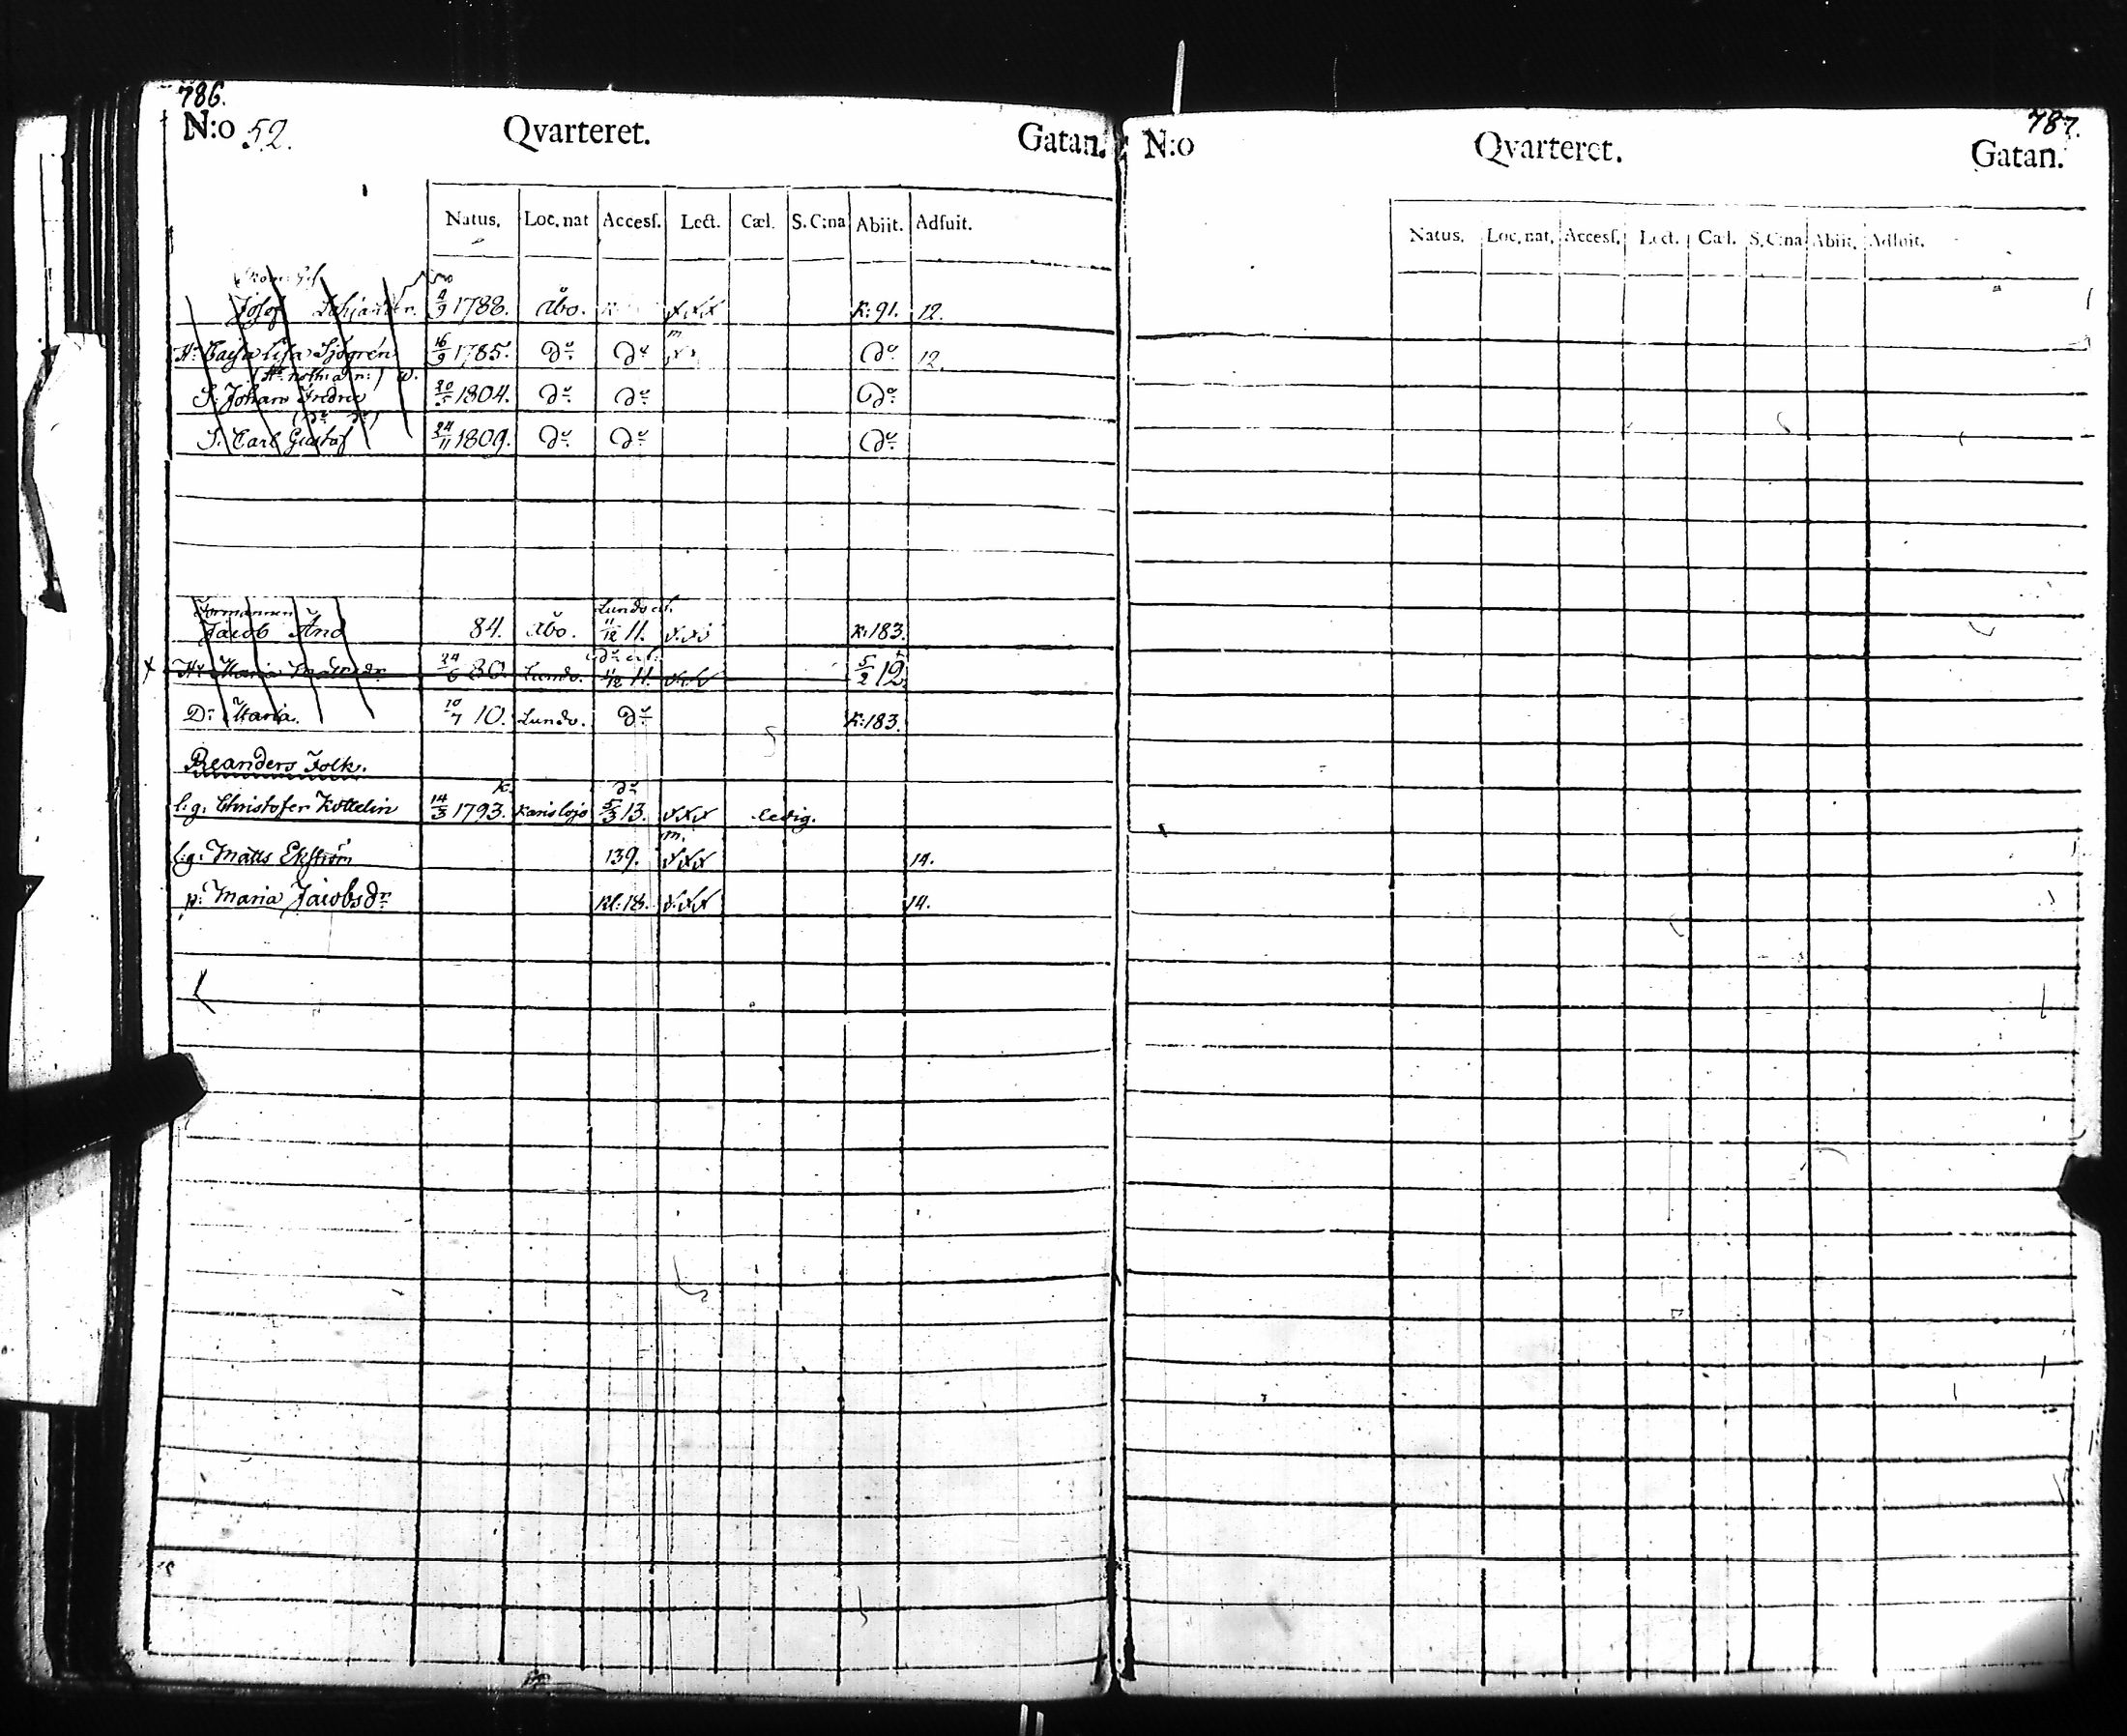 786.
N:o 52. Qvarteret. Gatan.
Natus. Loc. nat Accesſ. Lect. Cæl. S. C:na Abiit. Adfuit.
Josef 4/9 1788. Åbo. xxx K: 91. 12.
Hu Cajsa Lisa Sjögren 16/9 1785. Do Do m Do 12.
S. Johan Fredric 1804. Do Do Do
S. Carl Gustaf 24/11 1809. Do Do Do
Formannen Lundo
Jacob 84. Åbo. 11/12 11. xxx K: 183.
x Hu Maria 24/6 80. Lundo. 11/12 11. xxx 5/2 12.
D: Maria. 10/7 10. Lundo. Do K: 183.
Reanders Folk.
l:g: Christofer Kottelin 14/3 1793. Karislojo Do 5/3 13. xxx ledig.
l:g: Matts Ekström 139. m. xxx 14.
p: Maria Jacobsdr Kl: 18. xxx 14.
787.
N:o Qvarteret. Gatan.
Natus. Loc. nat. Accesſ. Lect. Cæl. S. C:na Abiit. Adfuit.